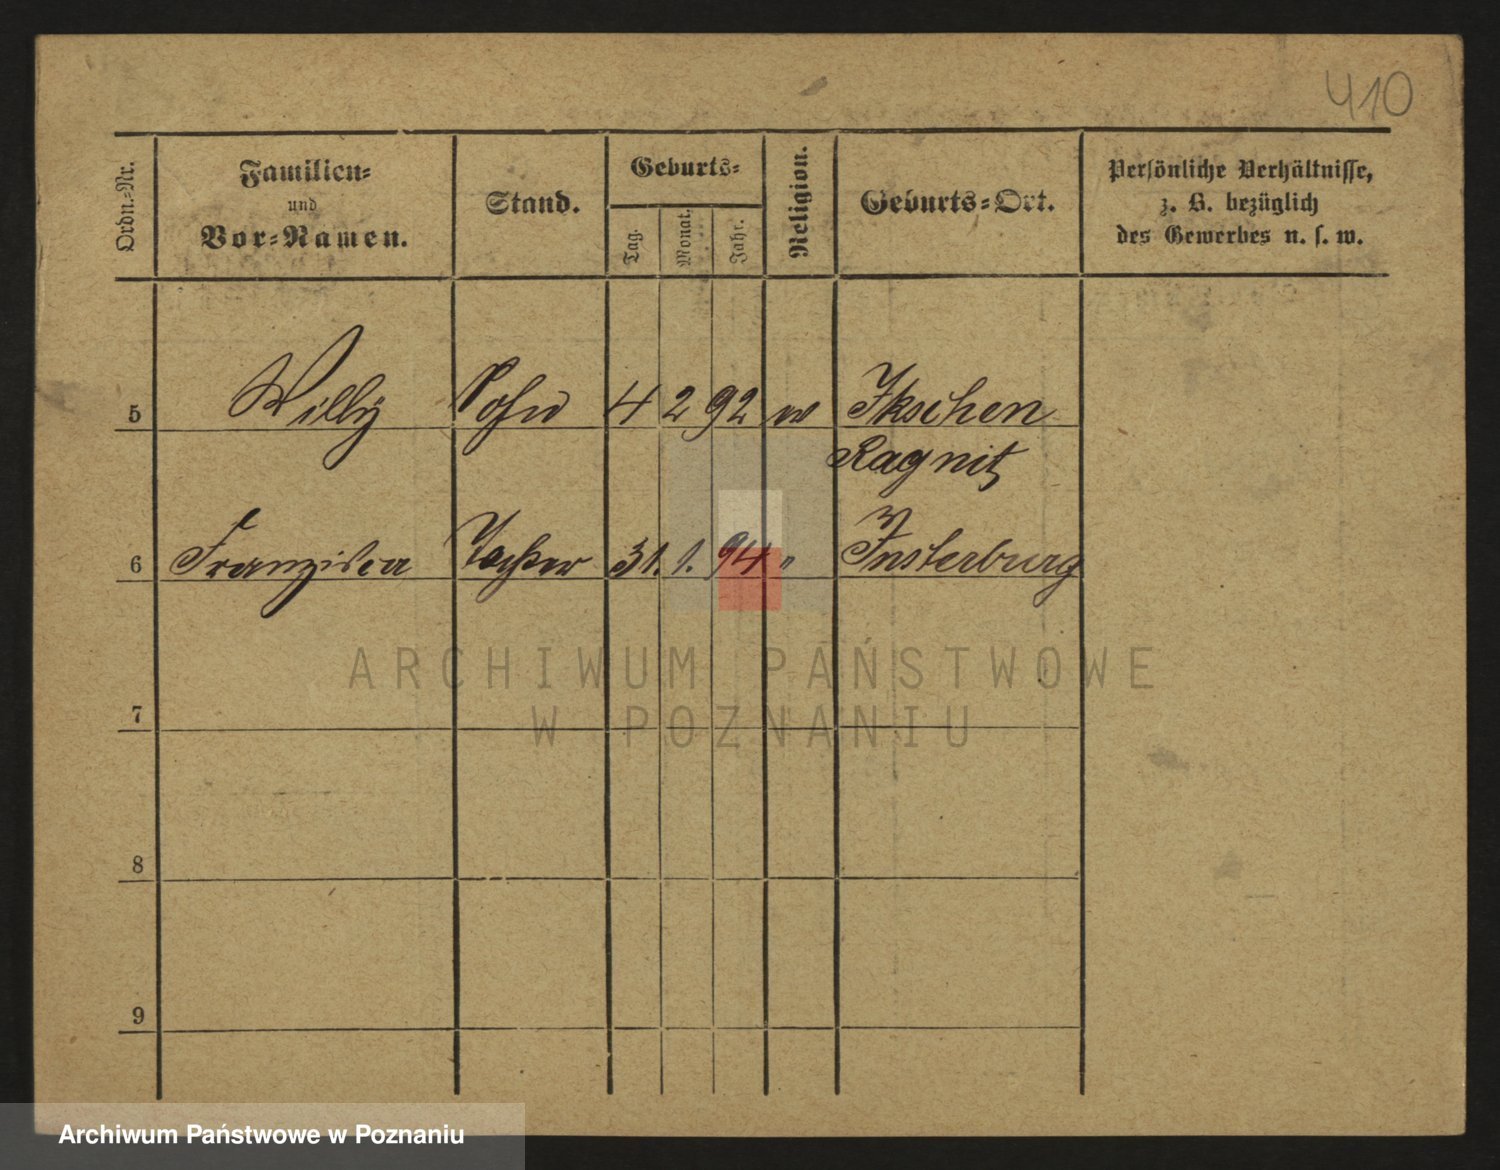 410
Ordn.-Nr.
Familien-
und
Vor-Namen.
Stand.
Geburts-
Tag.
Monat.
Jahr.
Religion.
Geburts-Ort.
Persönliche Verhältnisse,
z. B. bezüglich
des Gewerbes u. s. w.
5 Willy Sohn 4 2 92 Ikschen
Ragnit
6 Franziska Tochter 31. 1. 94 " Insterburg
ARCHIWUM PAŃSTWOWE
W POZNANIU
7
8
9
Archiwum Państwowe w Poznaniu